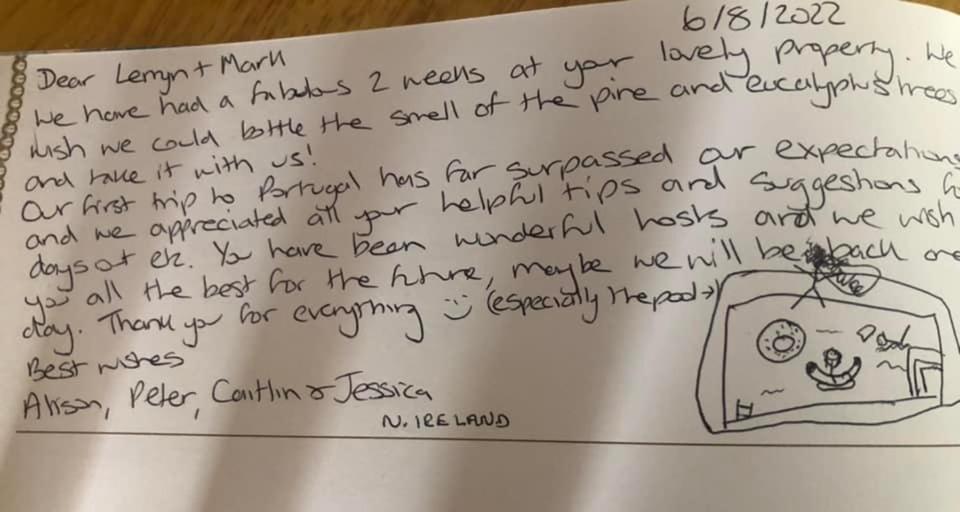 6/8/2022
Dear Lerryn + Mark
We have had a fabulous 2 weeks at your lovely property. We
wish we could bottle the smell of the pine and eucalyptus trees
and take it with us!
Our first trip to Portugal has far surpassed our expectations
and we appreciated all your helpful tips and suggestions
days out etc. You have been wonderful hosts and we wish
you all the best for the future, maybe we will be back one
day. Thank you for everything (especially the pool →)
Best wishes
Alison, Peter, Caitlin & Jessica
N. IRELAND